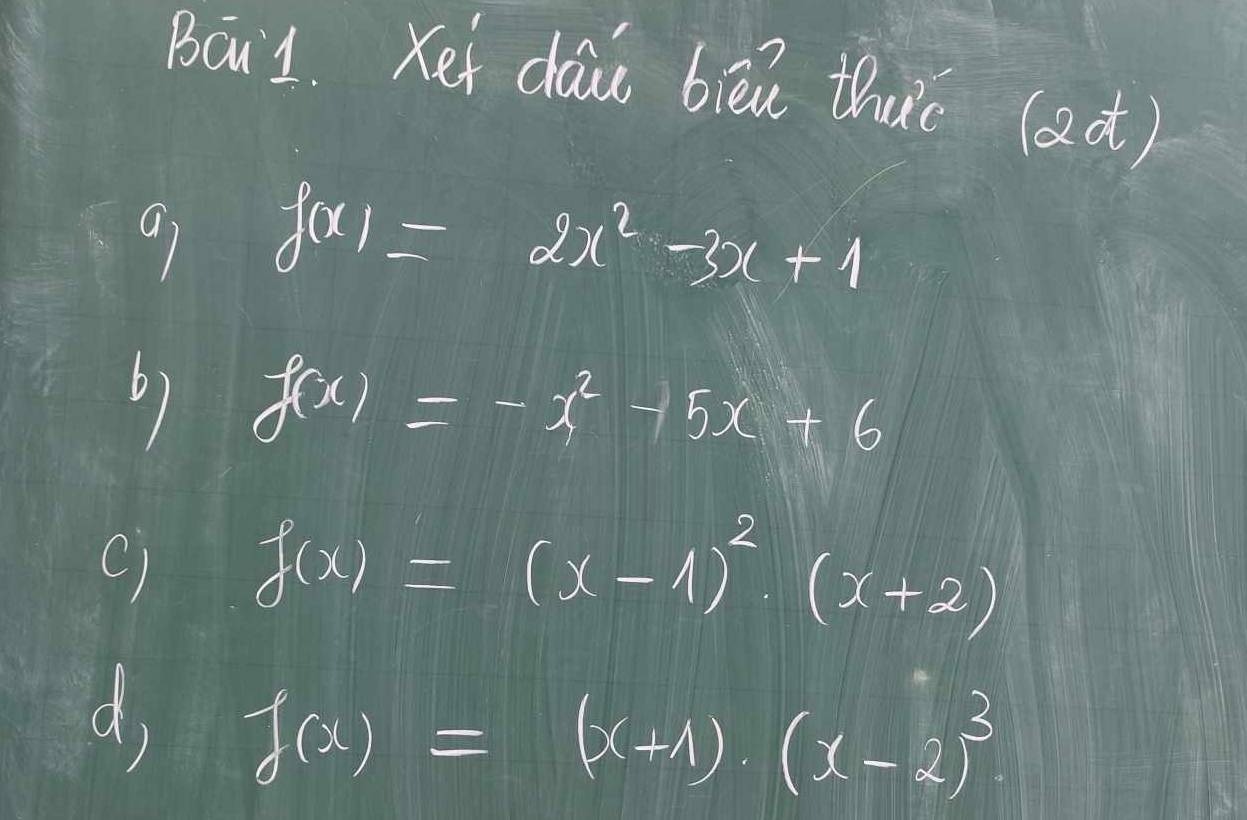 Bài 1. Xét dấu biểu thức (2đ)
a, f(x) = 2x² -3x + 1
b) f(x) = - x² - 5x + 6
c) f(x) = (x - 1)² . (x + 2)
d, f(x) = (x+1) . (x - 2)³.